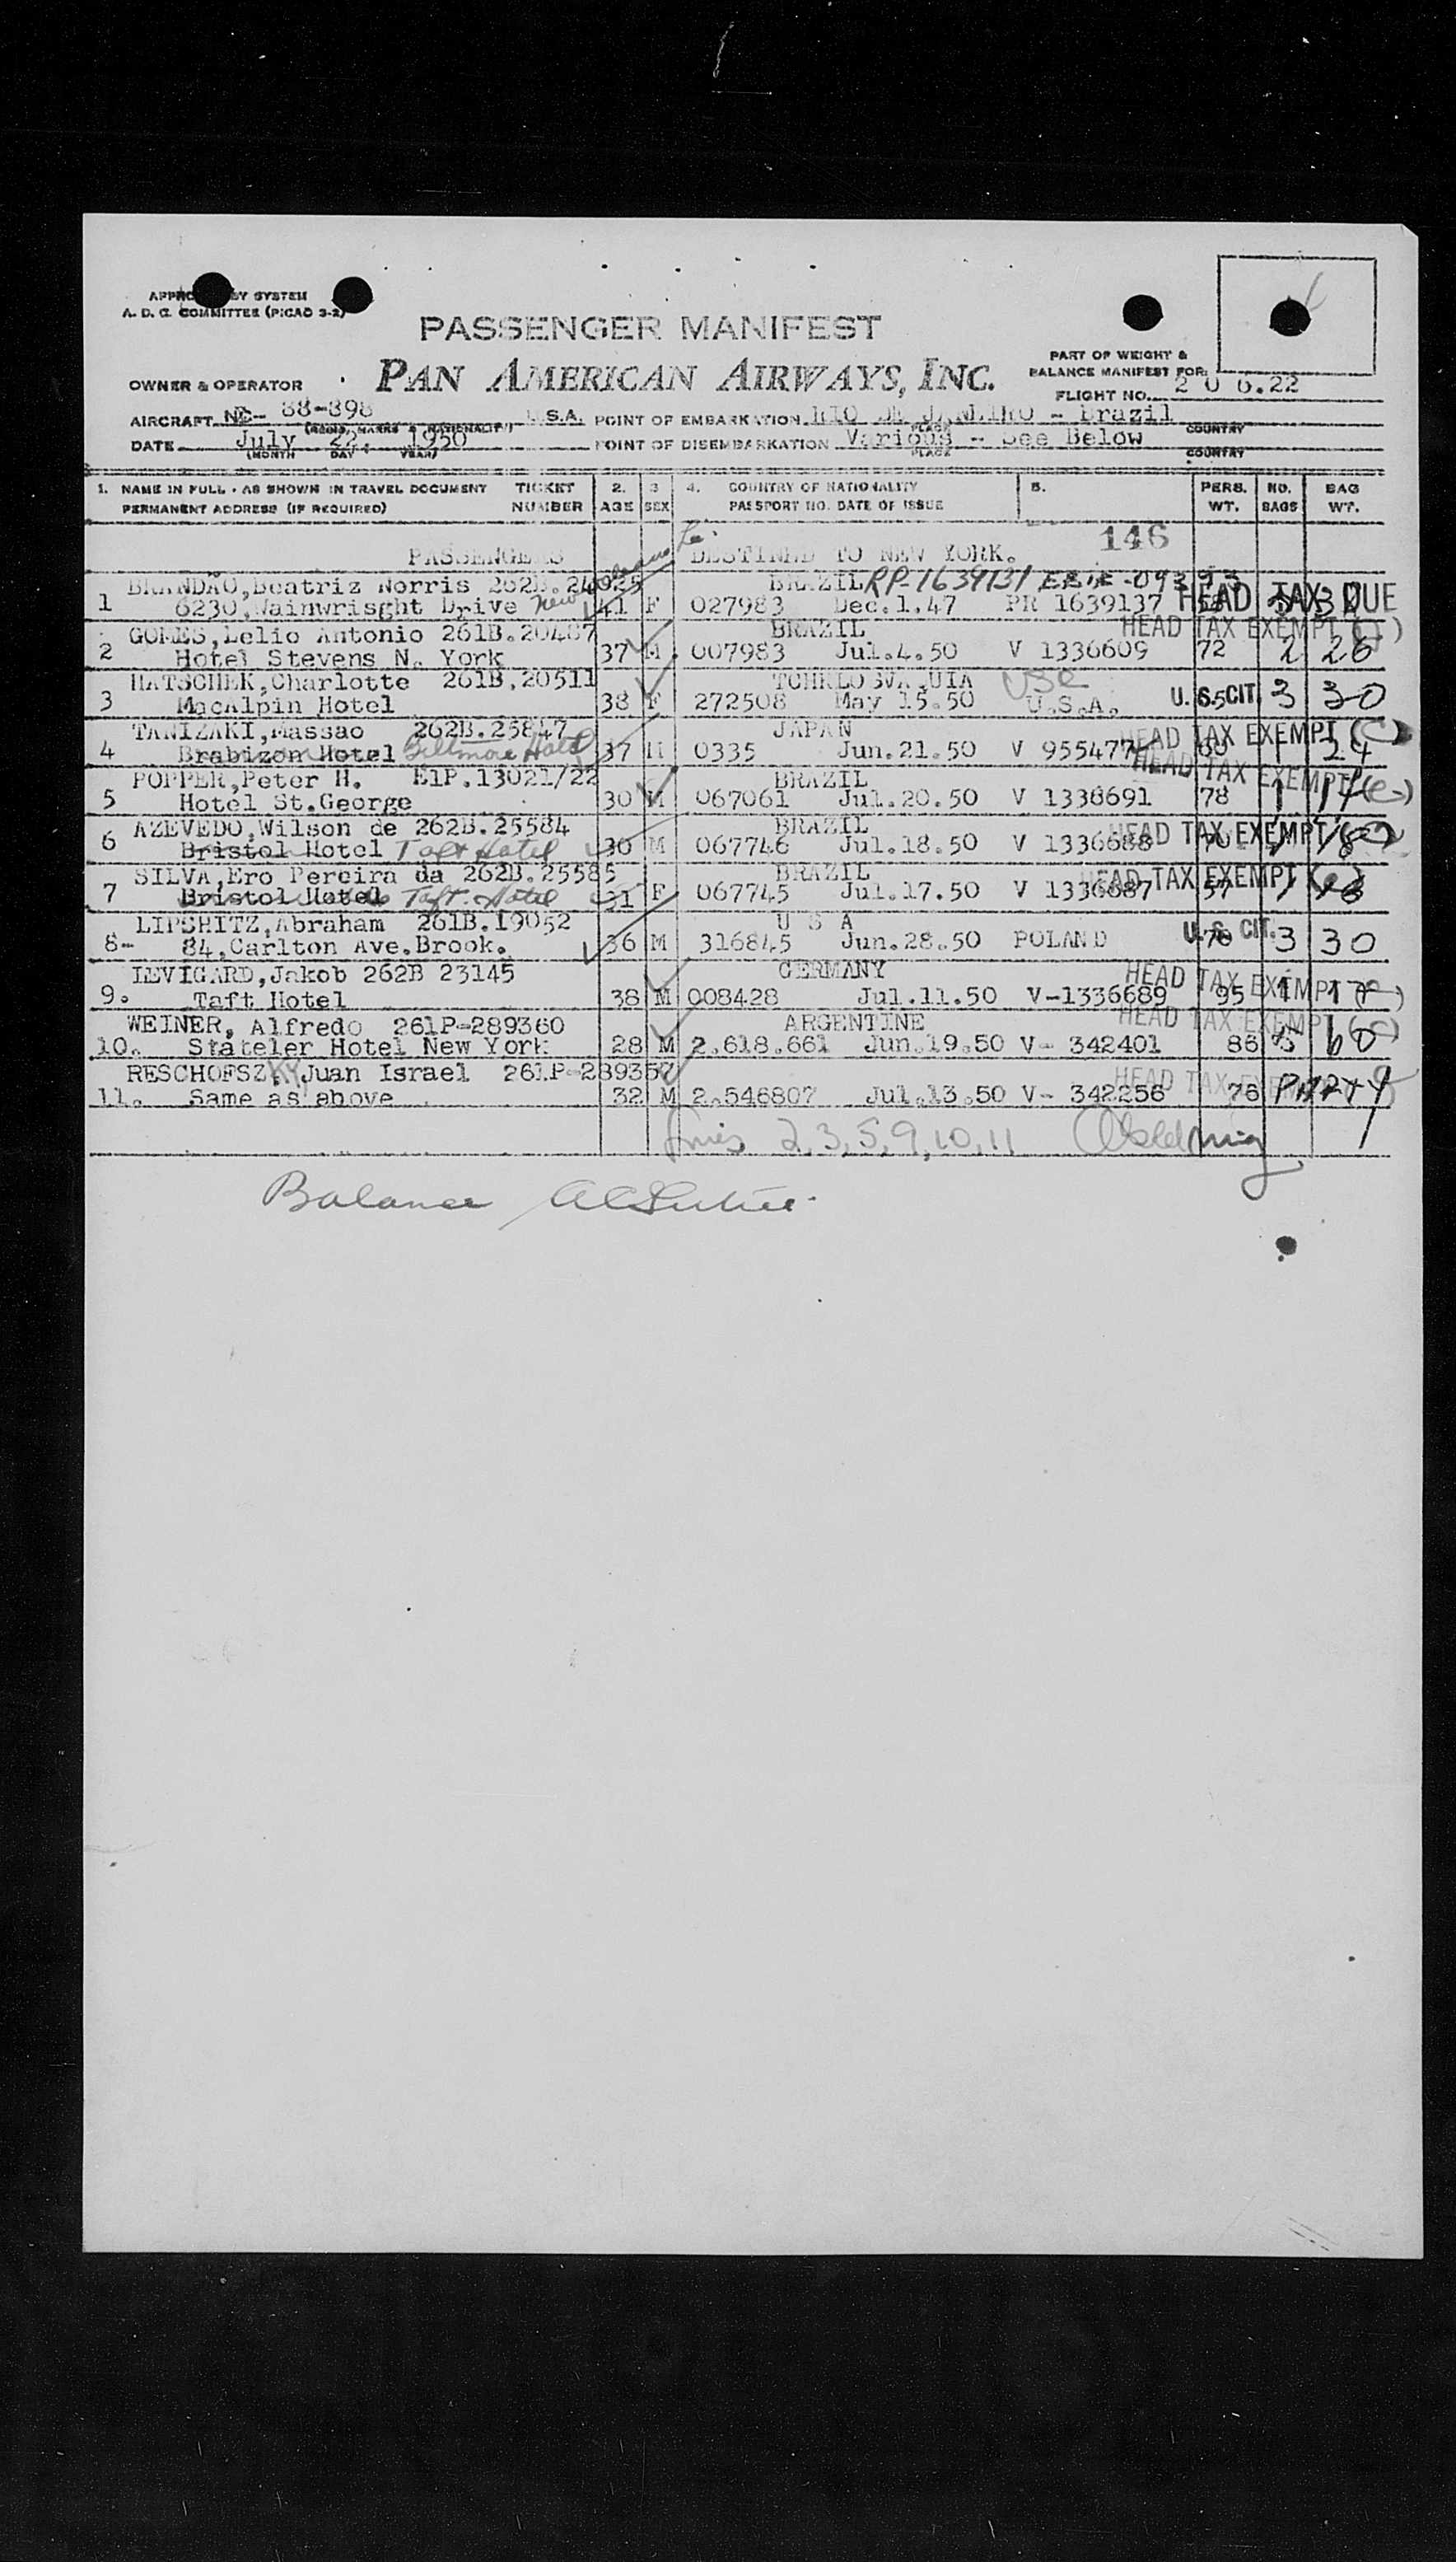 BY SYSTEM
A. D. C. COMMITTEE (PICAO 3-2)
PASSENGER MANIFEST
PAN AMERICAN AIRWAYS, INC.
PART OF WEIGHT &
BALANCE MANIFEST FOR:
OWNER & OPERATOR
FLIGHT NO. 2 0 6.22
AIRCRAFT NC- 88-898 U.S.A. POINT OF EMBARKATION RIO DE JANEIRO - Brazil
(REGIS. MARKS & NATIONALITY) PLACE COUNTRY
DATE July 22, 1950 POINT OF DISEMBARKATION Various - See Below
(MONTH DAY YEAR) PLACE COUNTRY
1. NAME IN FULL - AS SHOWN IN TRAVEL DOCUMENT TICKET 2. 3 4. COUNTRY OF NATIONALITY 5. PERS. NO. BAG
PERMANENT ADDRESS (IF REQUIRED) NUMBER AGE SEX PASSPORT NO. DATE OF ISSUE WT. BAGS WT.
146
PASSENGERS DESTINED TO NEW YORK.
BRANDAO, Beatriz Norris 262B.24925 BRAZIL
1 6230, Wainwrisght Drive New Orleans La. 41 F 027983 Dec.1.47 PR 1639137 HEAD TAX DUE
GOMES, Lelio Antonio 261B.20487 BRAZIL HEAD TAX EXEMPT
2 Hotel Stevens N. York 37 M 007983 Jul.4.50 V 1336609 72 2 26
HATSCHEK, Charlotte 261B.20511 TCHKLOSVAQUIA USC
3 MacAlpin Hotel 38 F 272508 May 15.50 U.S.A. U. S. CIT. 65 3 30
TANIZAKI, Massao 262B.25847 JAPAN HEAD TAX EXEMPT (C)
4 Brabizon Hotel Biltmore Hotel 37 M 0335 Jun.21.50 V 955477 1 24
POPPER, Peter H. E1P.13021/22 BRAZIL HEAD TAX EXEMPT (C)
5 Hotel St.George 30 M 067061 Jul.20.50 V 1338691 78 1 17
AZEVEDO, Wilson de 262B.25584 BRAZIL
6 Bristol Hotel Taft Hotel 30 M 067746 Jul.18.50 V 1336688 HEAD TAX EXEMPT 1 18
SILVA, Ero Pereira da 262B.25585 BRAZIL HEAD TAX EXEMPT
7 Bristol Hotel Taft Hotel 31 F 067745 Jul.17.50 V 1336687 57 1 18
LIPSHITZ, Abraham 261B.19052 U S A
8- 84, Carlton Ave. Brook. 36 M 316845 Jun.28.50 POLAND U. S. CIT. 70 3 30
LEVIGARD, Jakob 262B 23145 GERMANY HEAD TAX EXEMPT
9. Taft Hotel 38 M 008428 Jul.11.50 V-1336689 95 1 17
WEINER, Alfredo 261P-289360 ARGENTINE HEAD TAX EXEMPT (C)
10. Stateler Hotel New York 28 M 2.618.661 Jun.19.50 V- 342401 86 60
RESCHOFSZKY, Juan Israel 261P-289357 HEAD TAX EXEMPT
11. Same as above 32 M 2.546807 Jul.13.50 V- 342256 76
lines 2,3,5,9,10,11
Balance